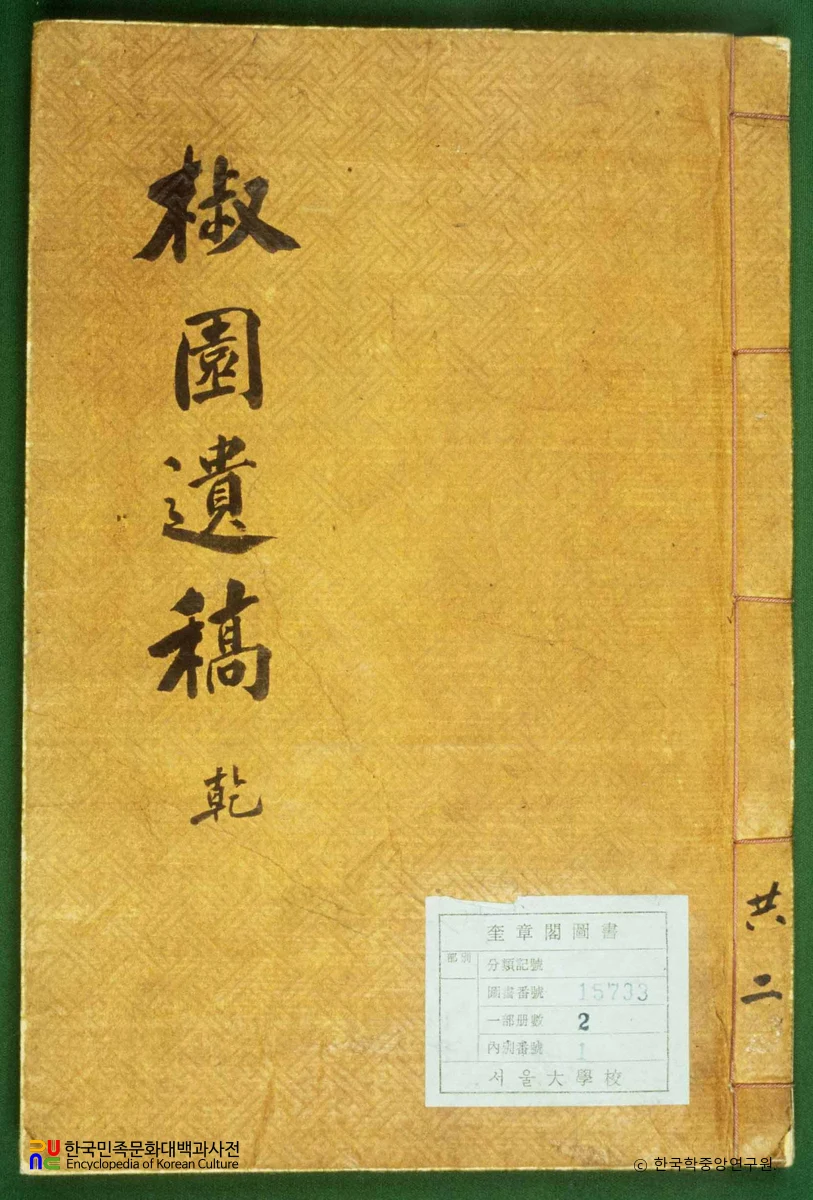 椒園遺稿 乾
共二
奎章閣圖書
部別
分類記號
圖書番號 15733
一部冊數 2
內別番號 1
서울大學校
한국민족문화대백과사전
Encyclopedia of Korean Culture
© 한국학중앙연구원